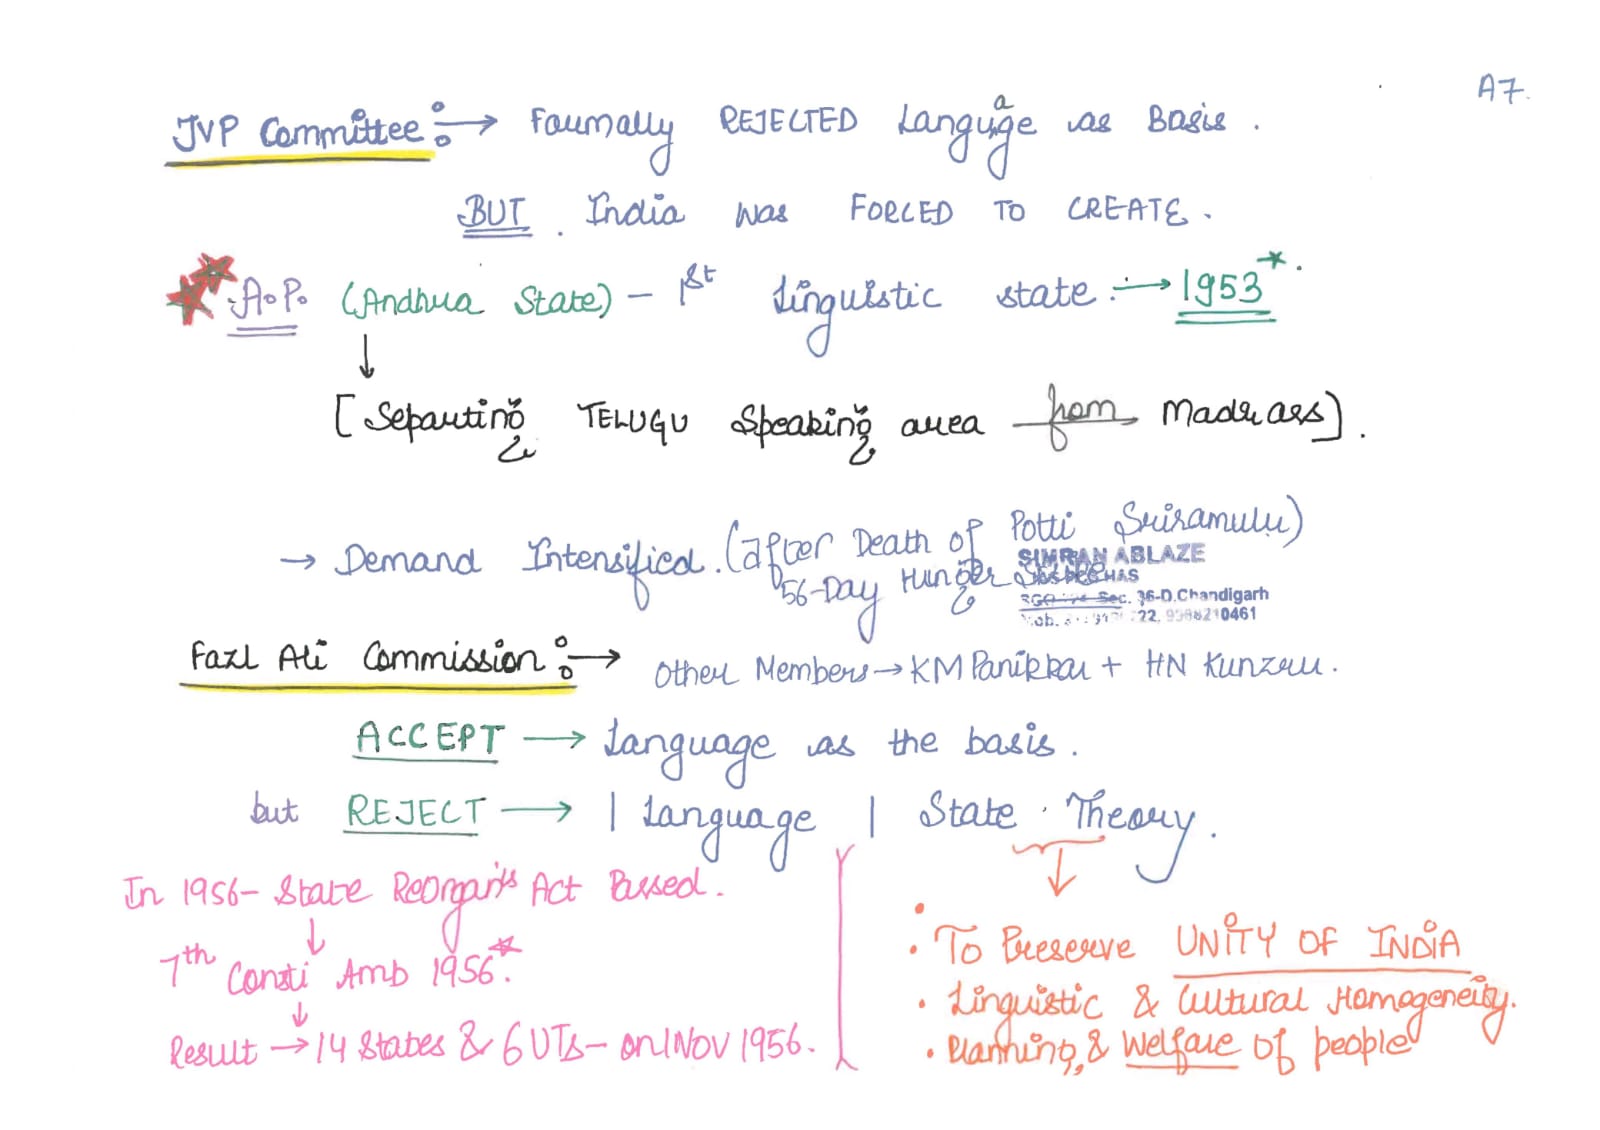 A7.
JVP Committee :→ Formally REJECTED Language as Basis .
BUT . India was FORCED TO CREATE .
A.P. (Andhra State) - 1st Linguistic state :→ 1953*.
↓
[ Seprating TELUGU Speaking area from Madrass ] .
→ Demand Intensified . (after Death of Potti Sriramulu)
56-Day Hunger
SIMRAN ABLAZE
Sec. 36-D.Chandigarh
Fazl Ali Commission :→ Other Members → KM Panikkar + HN Kunzru .
ACCEPT → Language as the basis .
but REJECT → 1 Language 1 State Theory .
In 1956 - State Reorganis Act Passed .
↓
7th Consti Amb 1956*.
↓
Result → 14 States & 6 UTs - on 1 Nov 1956 .
↓
• To Preserve UNITY OF INDIA
• Linguistic & Cultural Homogeneity.
• Planning, & Welfare of people